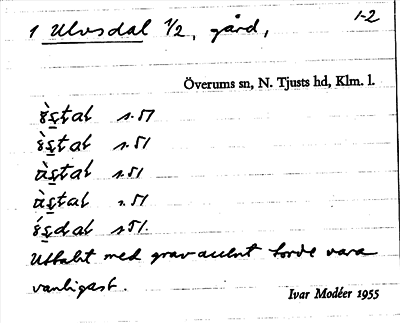 1 Ulvsdal 1/2, gård, 1-2
Överums sn, N. Tjusts hd, Klm. l.
s. 51
s. 51
s. 51
s. 51
s 51.
Uttalet med grav accent torde vara
vanligast.
Ivar Modéer 1955